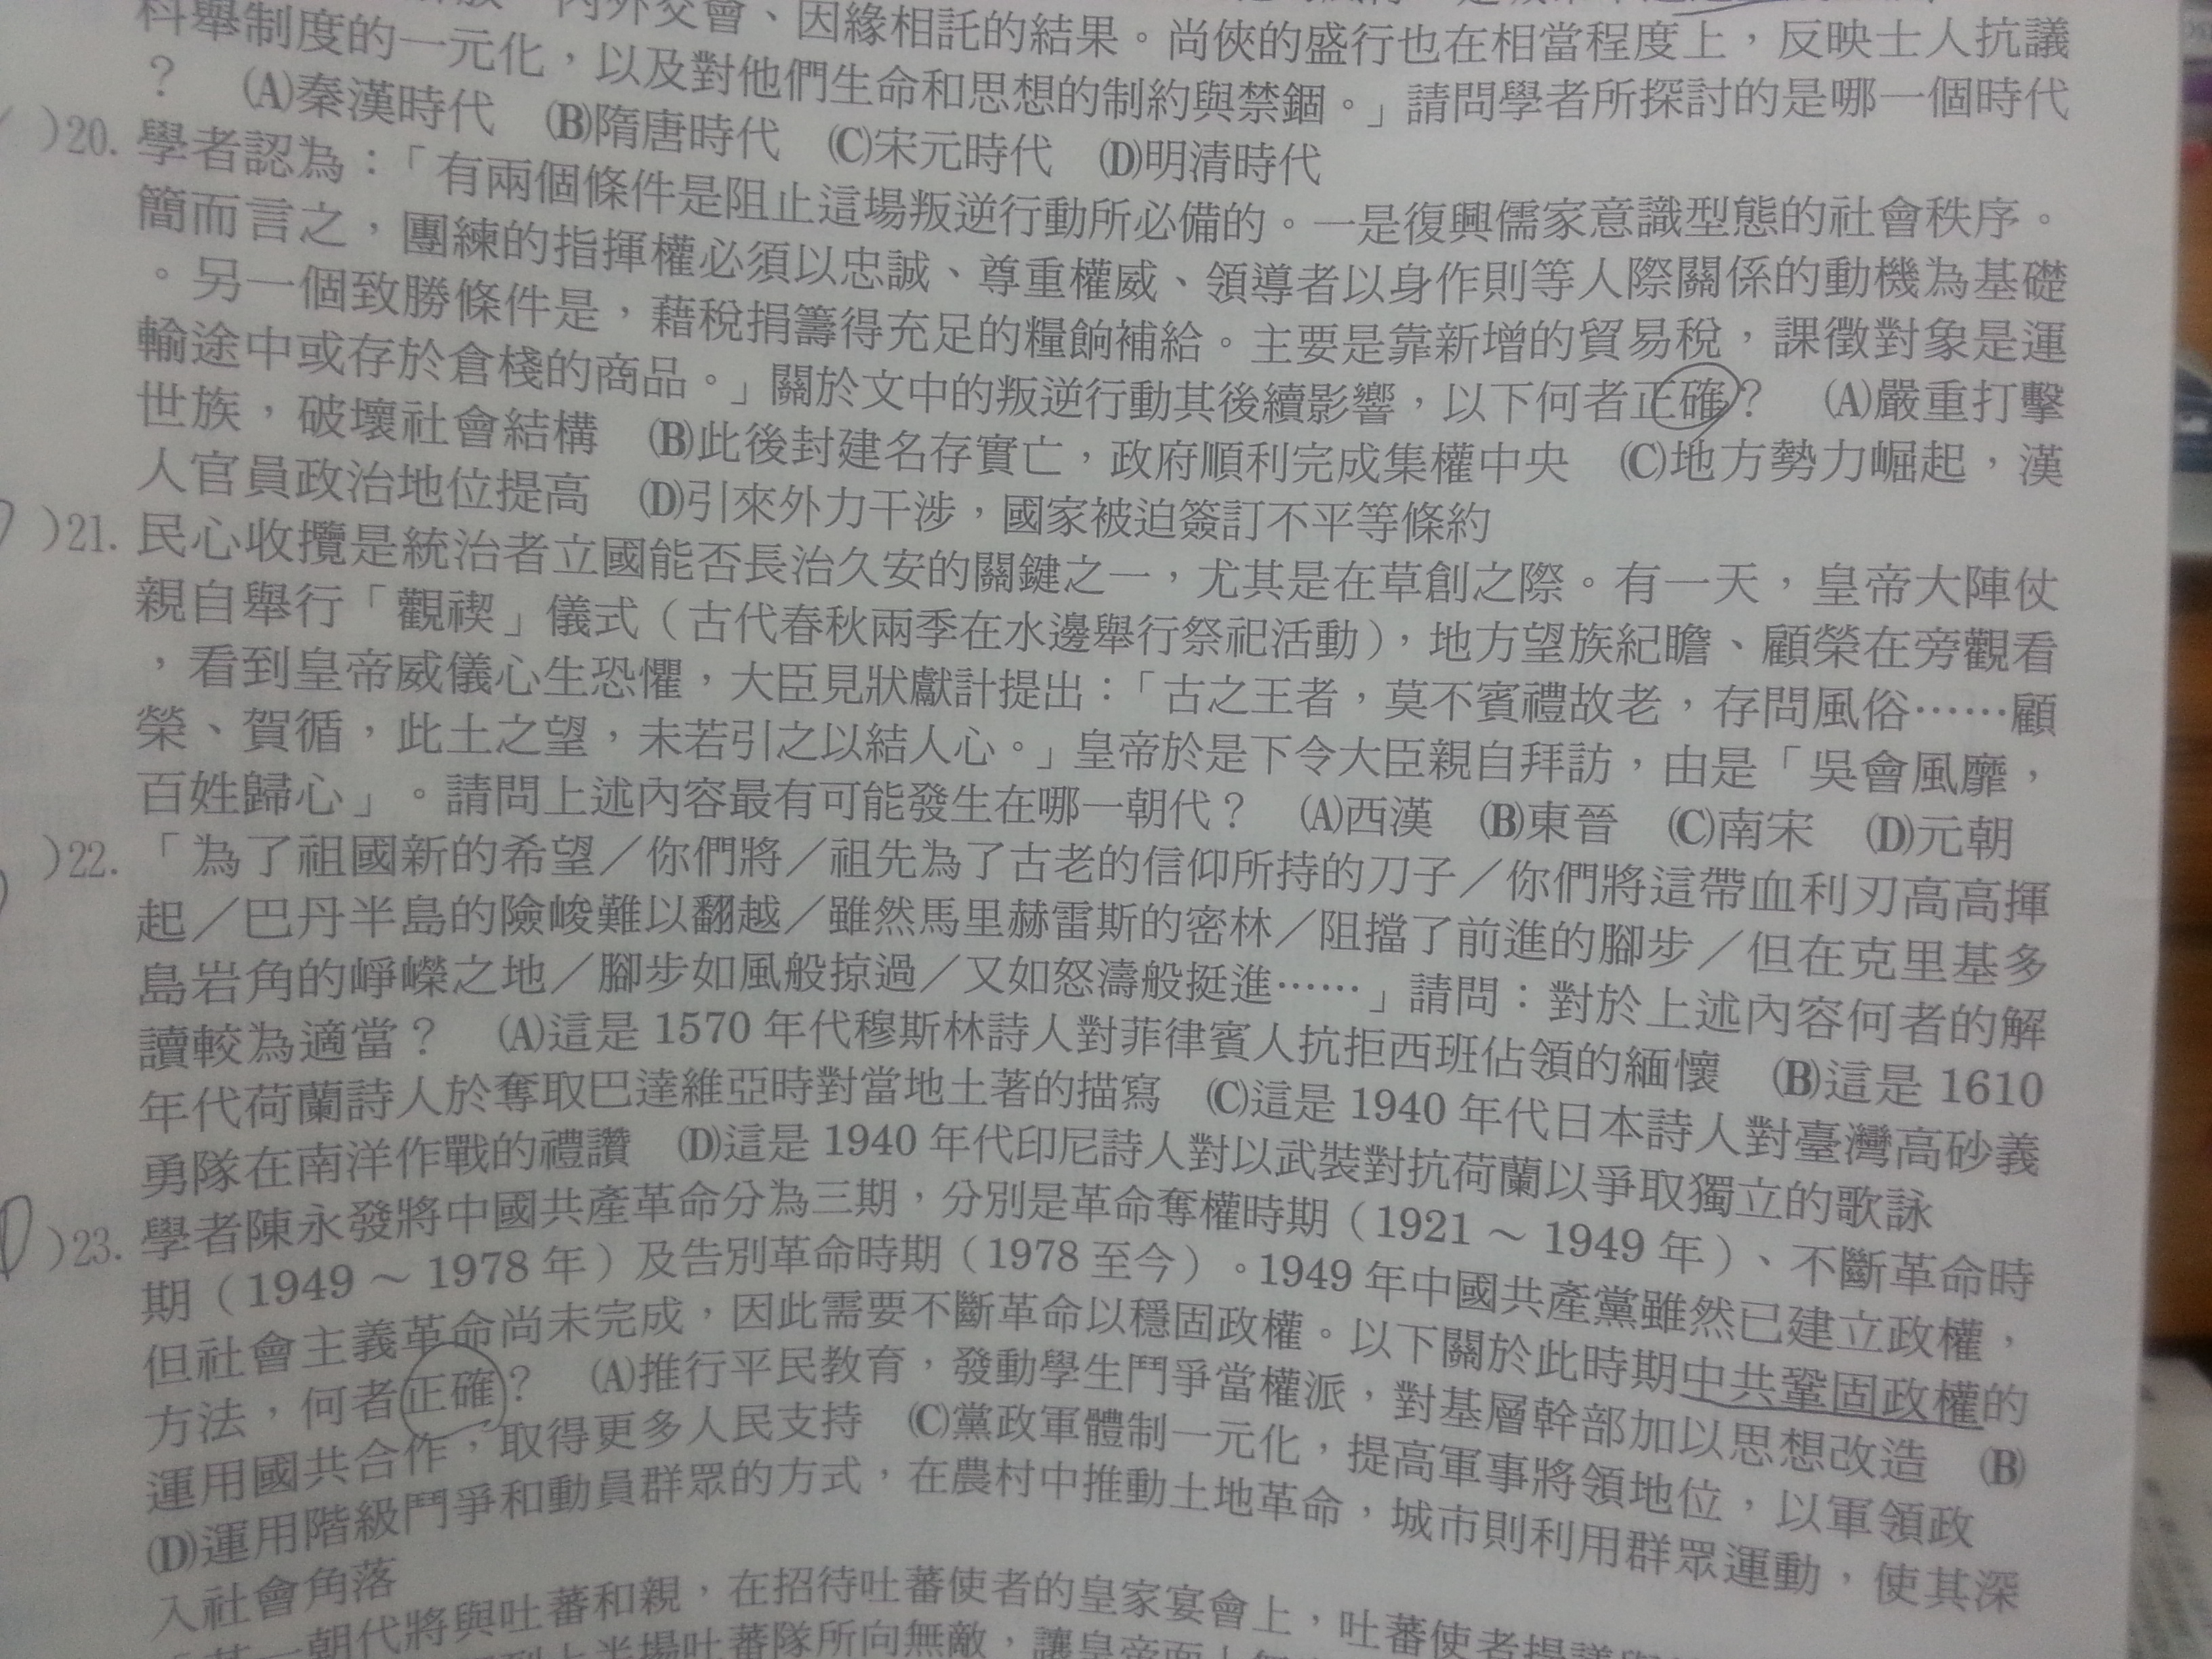 放 內外交會、因緣相託的結果。尚俠的盛行也在相當程度上，反映士人抗議
科舉制度的一元化，以及對他們生命和思想的制約與禁錮。」請問學者所探討的是哪一個時代
？ (A)秦漢時代 (B)隋唐時代 (C)宋元時代 (D)明清時代
)20. 學者認為：「有兩個條件是阻止這場叛逆行動所必備的。一是復興儒家意識型態的社會秩序。
簡而言之，團練的指揮權必須以忠誠、尊重權威、領導者以身作則等人際關係的動機為基礎
。另一個致勝條件是，藉稅捐籌得充足的糧餉補給。主要是靠新增的貿易稅，課徵對象是運
輸途中或存於倉棧的商品。」關於文中的叛逆行動其後續影響，以下何者正確？ (A)嚴重打擊
世族，破壞社會結構 (B)此後封建名存實亡，政府順利完成集權中央 (C)地方勢力崛起，漢
人官員政治地位提高 (D)引來外力干涉，國家被迫簽訂不平等條約
)21. 民心收攬是統治者立國能否長治久安的關鍵之一，尤其是在草創之際。有一天，皇帝大陣仗
親自舉行「觀禊」儀式（古代春秋兩季在水邊舉行祭祀活動），地方望族紀瞻、顧榮在旁觀看
，看到皇帝威儀心生恐懼，大臣見狀獻計提出：「古之王者，莫不賓禮故老，存問風俗……顧
榮、賀循，此土之望，未若引之以結人心。」皇帝於是下令大臣親自拜訪，由是「吳會風靡，
百姓歸心」。請問上述內容最有可能發生在哪一朝代？ (A)西漢 (B)東晉 (C)南宋 (D)元朝
)22. 「為了祖國新的希望／你們將／祖先為了古老的信仰所持的刀子／你們將這帶血利刃高高揮
起／巴丹半島的險峻難以翻越／雖然馬里赫雷斯的密林／阻擋了前進的腳步／但在克里基多
島岩角的崢嶸之地／腳步如風般掠過／又如怒濤般挺進……」請問：對於上述內容何者的解
讀較為適當？ (A)這是 1570 年代穆斯林詩人對菲律賓人抗拒西班佔領的緬懷 (B)這是 1610
年代荷蘭詩人於奪取巴達維亞時對當地土著的描寫 (C)這是 1940 年代日本詩人對臺灣高砂義
勇隊在南洋作戰的禮讚 (D)這是 1940 年代印尼詩人對以武裝對抗荷蘭以爭取獨立的歌詠
)23. 學者陳永發將中國共產革命分為三期，分別是革命奪權時期（1921 ～ 1949 年）、不斷革命時
期（1949 ～ 1978 年）及告別革命時期（1978 至今）。1949 年中國共產黨雖然已建立政權，
但社會主義革命尚未完成，因此需要不斷革命以穩固政權。以下關於此時期中共鞏固政權的
方法，何者正確？ (A)推行平民教育，發動學生鬥爭當權派，對基層幹部加以思想改造 (B)
運用國共合作，取得更多人民支持 (C)黨政軍體制一元化，提高軍事將領地位，以軍領政
(D)運用階級鬥爭和動員群眾的方式，在農村中推動土地革命，城市則利用群眾運動，使其深
入社會角落
一朝代將與吐蕃和親，在招待吐蕃使者的皇家宴會上，吐蕃使者提議
上半場吐蕃隊所向無敵，讓皇帝面上